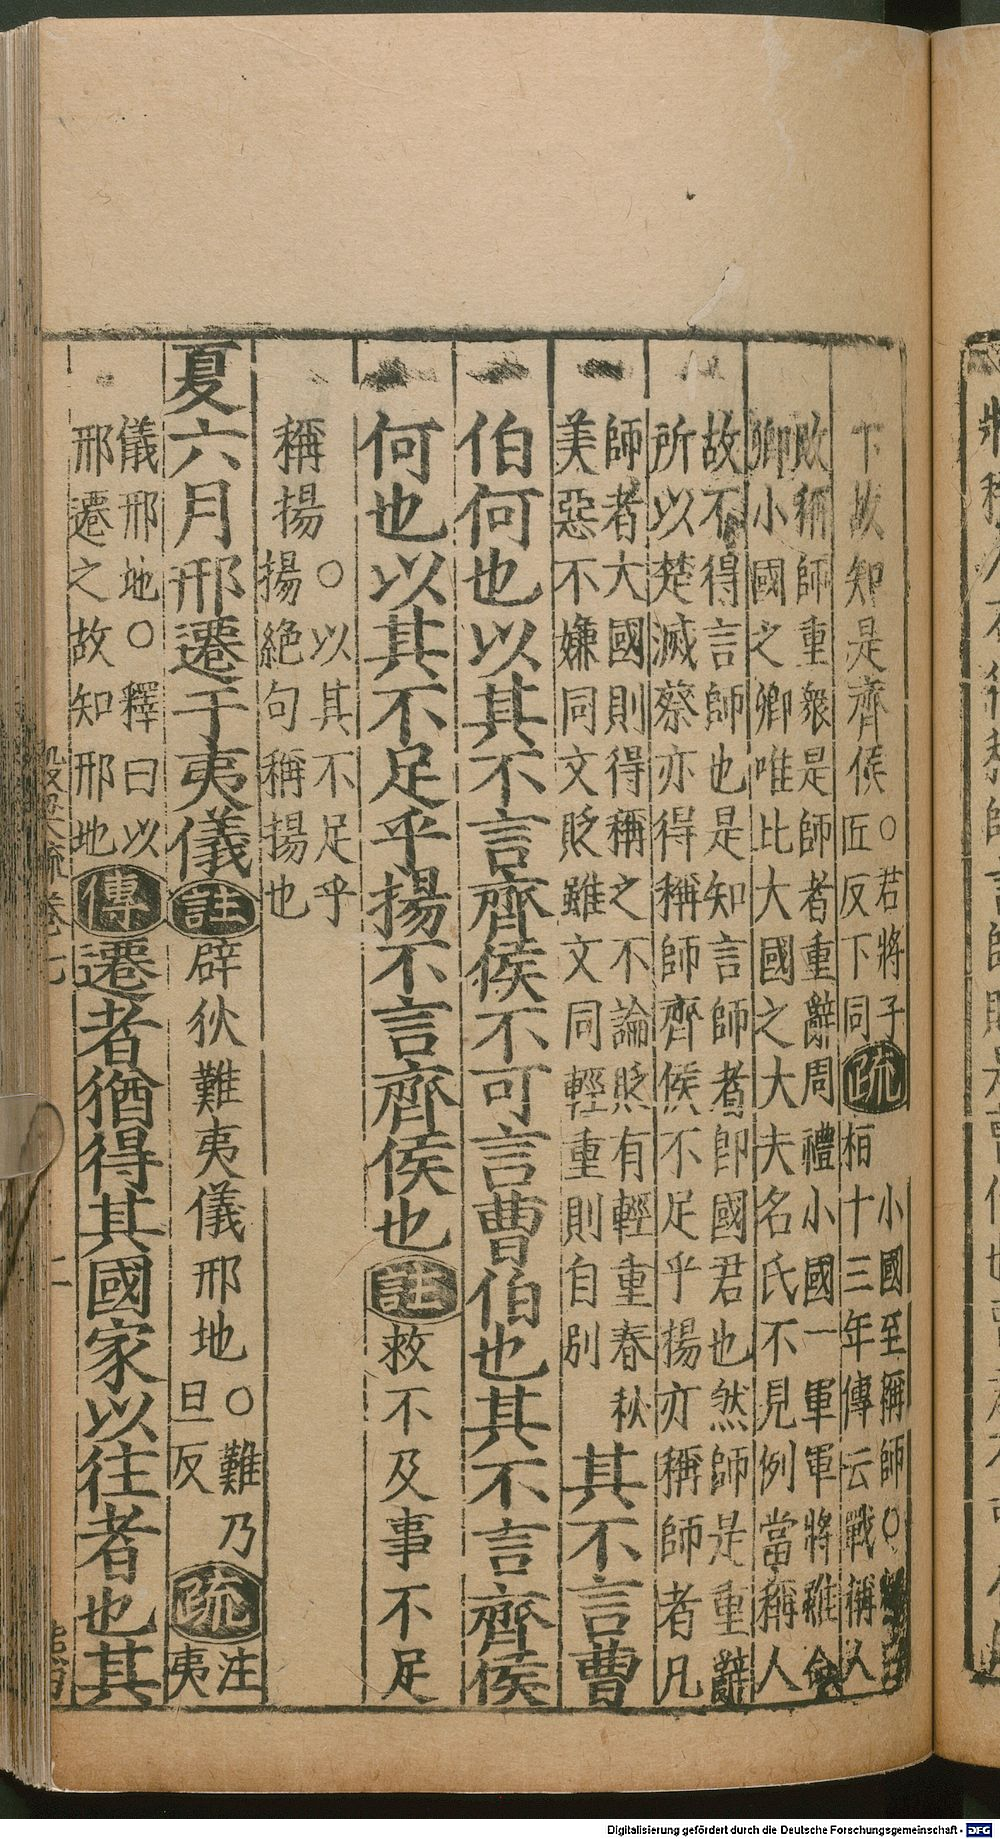 下故知是齊侯○若將子
匠反下同疏小國至稱師○
桓十三年傳云戰稱人
敗稱師重衆是師者重辭周禮小國一軍軍將雖命
卿小國之卿唯比大國之大夫名氏不見例當稱人
故不得言師也是知言師者即國君也然師是重辭
所以楚滅蔡亦得稱師齊侯不足乎揚亦稱師者凡
師者大國則得稱之不論貶有輕重春秋
美惡不嫌同文貶雖文同輕重則自別
其不言曹
伯何也以其不言齊侯不可言曹伯也其不言齊侯
何也以其不足乎揚不言齊侯也註救不及事不足
稱揚○以其不足乎
揚絶句稱揚也
夏六月邢遷于夷儀註辟狄難夷儀邢地○難乃
旦反疏注
夷
儀邢地○釋曰以
邢遷之故知邢地傳遷者猶得其國家以往者也其
穀梁疏卷七
二
Digitalisierung gefördert durch die Deutsche Forschungsgemeinschaft - DFG